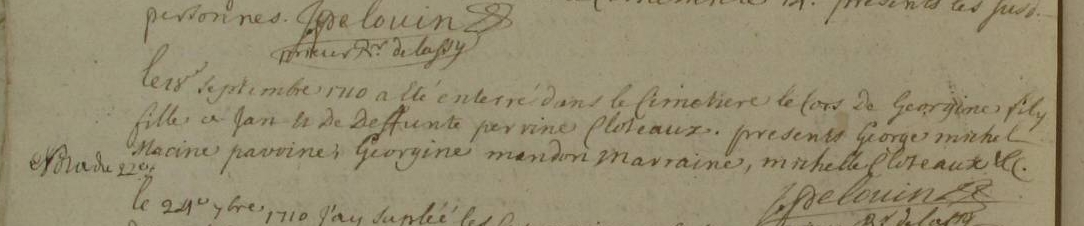 personnes. JPelouin
prieur Rr de lassy
le 18e septembre 1710 a été enterré dans le Cimetiere le Cors de Georgine fily
fille a Jan et de Deffunte perrine Cloteaux. presents George michel
Macine parroine, Georgine mandon marraine, michelle Cloteaux &c.
Nota du 22e
JPelouin
Rr de lassy
le 24e 7bre 1710 j'ay suplée les